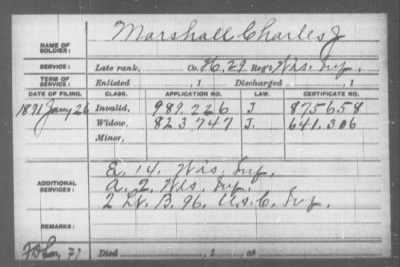 Marshall Charles J
NAME OF SOLDIER:
SERVICE: Late rank, Co. H. 29 Reg't Wis. Inf.
TERM OF SERVICE: Enlisted , 1 Discharged , 1
DATE OF FILING. CLASS. APPLICATION NO. LAW. CERTIFICATE NO.
1891 Jany 26 Invalid, 989.226 J. 875658
Widow, 823.747 J. 641.306
Minor,
ADDITIONAL SERVICES:
E. 14. Wis. Inf.
A. 2. Wis. Inf.
2 Lt. B. 96. U.S.C. Inf.
REMARKS:
Died , 1 , at